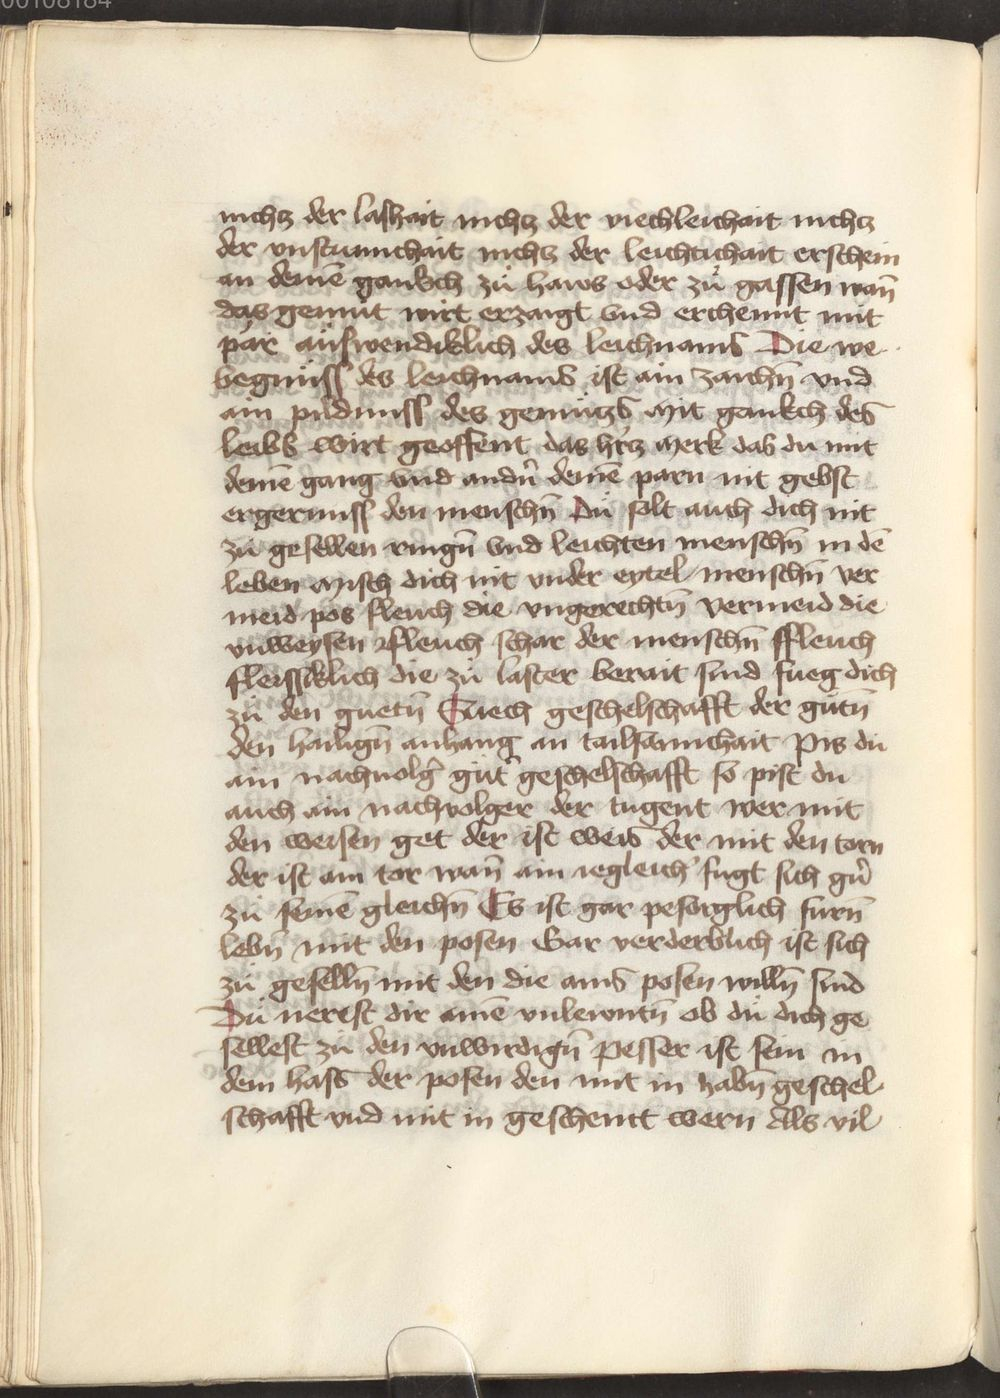 00108184
nichtz der lashait nichtz der viechleichait nichtz
der vnstumichait nichtz der leichtichait erschein
an deinē gankch zů haws oder zů gassen wañ
das gemüt wirt erzaigt vnd erchennt mit
pär auswendiklich des leichnams Die we
begnüss des leichnams ist ain zaichñ vnd
ain pildnuss des gemützs Mit gankch des
leibs wirt geoffent das hertz Merk das du mit
deinē gang vnd andñ deinē parn nit gebst
ergernuss den menschñ Du solt auch dich nit
zů gesellen ringñ vnd leichten menschñ in dē
leben Misch dich nit vnder eytel menschñ ver
meid pos fleuch die vngerechtñ Vermeid die
vnweysen fleuch schar der menschñ ffleuch
fleissiklich die zu laster berait sind fueg dich
zu den guetñ Suech geschelschafft der gutñ
den hailigñ anhang an tailsamichait Pis du
ain nachuolg̃ gut̃ geschelschafft so pist du
auch ain nachvolger der tugent wer mit
den weisen get der ist weis der mit den torn
der ist ain tor wañ ain iegleich̃ fugt sich gñ
zu seinē gleichñ Es ist gar pesorglich furñ
lebñ mit den posen Gar verderblich ist sich
zu gesellñ mit den die ains posen willñ sind
Du nerest dir ainē vnlewntñ ob du dich ge
sellest zu den vnwirdigñ Pesser ist sein in
dem hass der posen den mit in habñ geschel
schafft vnd mit in geschennt wern Als vil